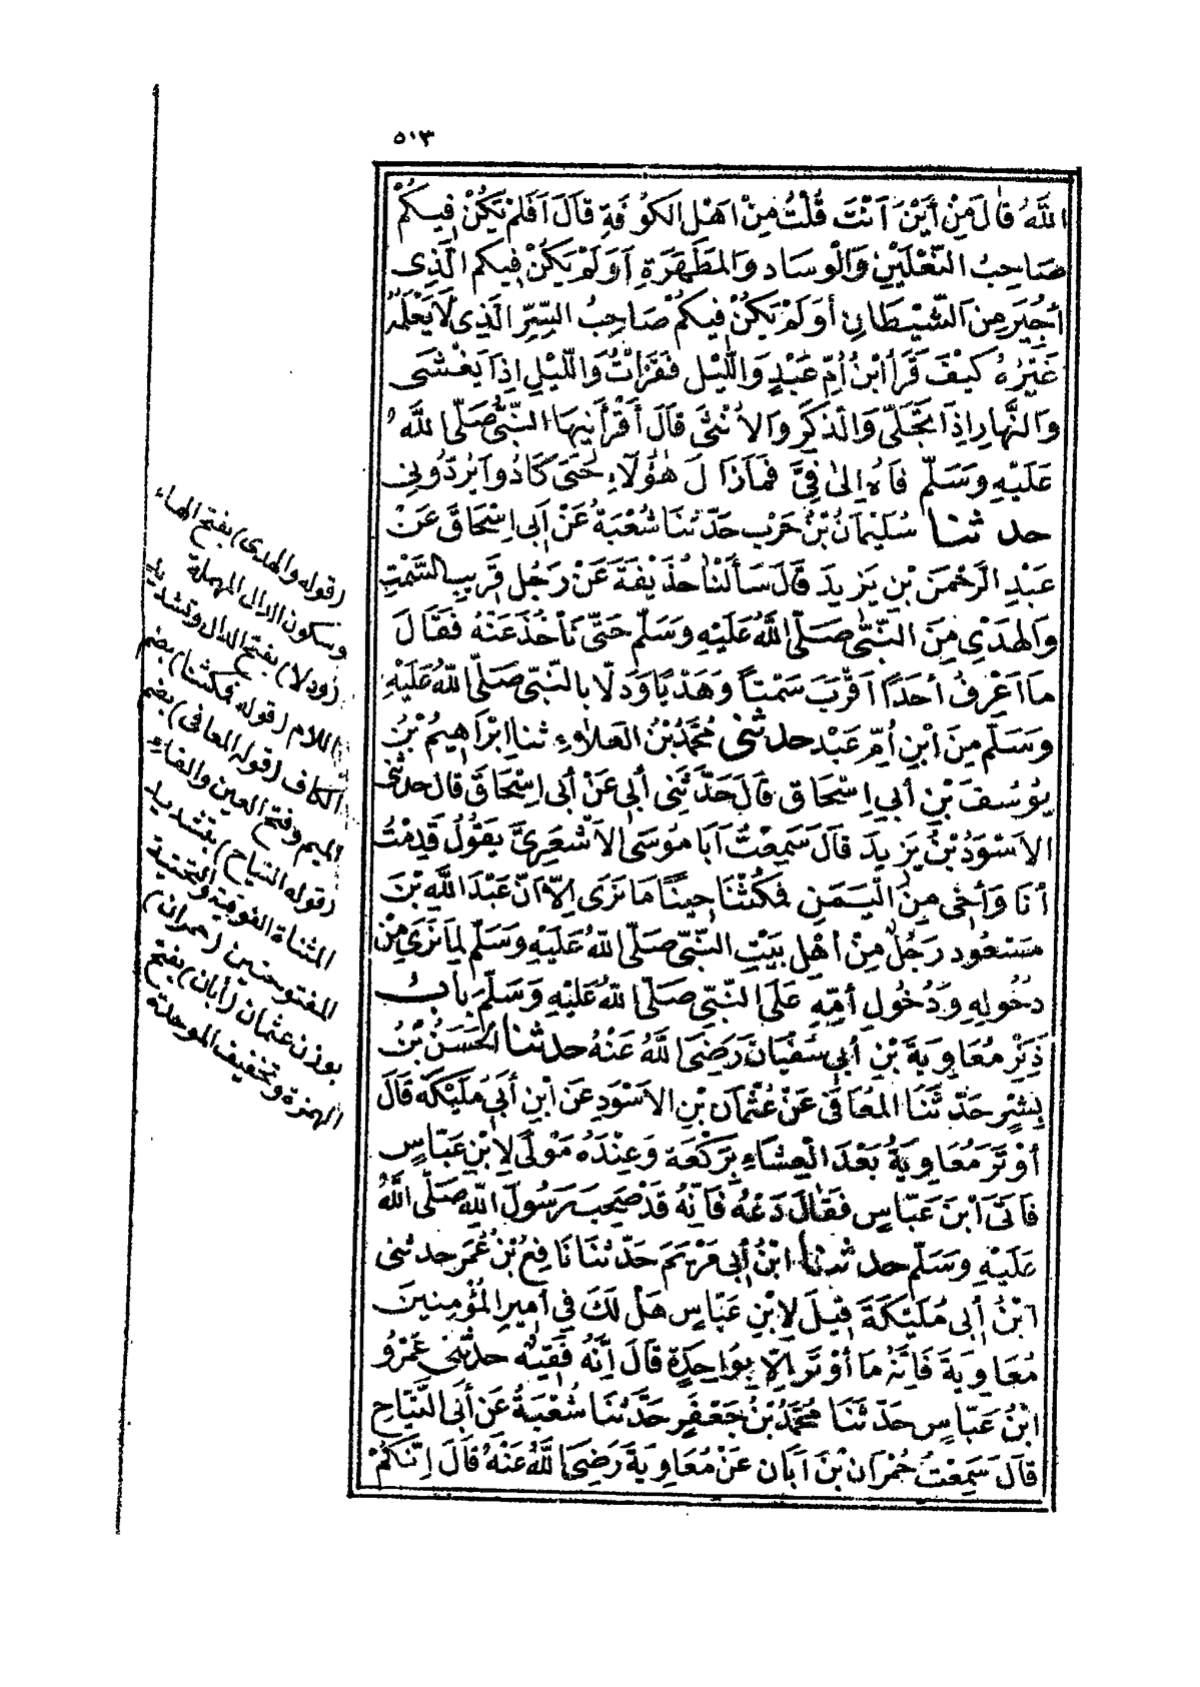 ٥٠٣
اللَّهُ قَالَ مِنْ أَيْنَ أَنْتَ قُلْتُ مِنْ أَهْلِ الْكُوفَةِ قَالَ أَفَلَمْ يَكُنْ فِيكُمْ
صَاحِبُ النَّعْلَيْنِ وَالْوِسَادِ وَالْمَطْهَرَةِ أَوَلَمْ يَكُنْ فِيكُمُ الَّذِي
أُجِيرَ مِنَ الشَّيْطَانِ أَوَلَمْ يَكُنْ فِيكُمْ صَاحِبُ السِّرِّ الَّذِي لَا يَعْلَمُهُ
غَيْرُهُ كَيْفَ قَرَأَ ابْنُ أُمِّ عَبْدٍ وَاللَّيْلِ فَقَرَأْتُ وَاللَّيْلِ إِذَا يَغْشَى
وَالنَّهَارِ إِذَا تَجَلَّى وَالذَّكَرِ وَالْأُنْثَى قَالَ أَقْرَأَنِيهَا النَّبِيُّ صَلَّى اللَّهُ
عَلَيْهِ وَسَلَّمَ فَاهُ إِلَى فِيَّ فَمَا زَالَ هَؤُلَاءِ حَتَّى كَادُوا يَرُدُّونِي
حدثنا سُلَيْمَانُ بْنُ حَرْبٍ حَدَّثَنَا شُعْبَةُ عَنْ أَبِي إِسْحَاقَ عَنْ
عَبْدِ الرَّحْمَنِ بْنِ يَزِيدَ قَالَ سَأَلْنَا حُذَيْفَةَ عَنْ رَجُلٍ قَرِيبِ السَّمْتِ
وَالْهَدْيِ مِنَ النَّبِيِّ صَلَّى اللَّهُ عَلَيْهِ وَسَلَّمَ حَتَّى نَأْخُذَ عَنْهُ فَقَالَ
مَا أَعْرِفُ أَحَدًا أَقْرَبَ سَمْتًا وَهَدْيًا وَدَلًّا بِالنَّبِيِّ صَلَّى اللَّهُ عَلَيْهِ
وَسَلَّمَ مِنَ ابْنِ أُمِّ عَبْدٍ حدثني مُحَمَّدُ بْنُ الْعَلَاءِ ثنا إِبْرَاهِيمُ بْنُ
يُوسُفَ بْنِ أَبِي إِسْحَاقَ قَالَ حَدَّثَنِي أَبِي عَنْ أَبِي إِسْحَاقَ قَالَ حدثني
الْأَسْوَدُ بْنُ يَزِيدَ قَالَ سَمِعْتُ أَبَا مُوسَى الْأَشْعَرِيَّ يَقُولُ قَدِمْتُ
أَنَا وَأَخِي مِنَ الْيَمَنِ فَمَكُثْنَا حِينًا مَا نَرَى إِلَّا أَنَّ عَبْدَ اللَّهِ بْنَ
مَسْعُودٍ رَجُلٌ مِنْ أَهْلِ بَيْتِ النَّبِيِّ صَلَّى اللَّهُ عَلَيْهِ وَسَلَّمَ لِمَا نَرَى مِنْ
دُخُولِهِ وَدُخُولِ أُمِّهِ عَلَى النَّبِيِّ صَلَّى اللَّهُ عَلَيْهِ وَسَلَّمَ بَابُ
ذِكْرِ مُعَاوِيَةَ بْنِ أَبِي سُفْيَانَ رَضِيَ اللَّهُ عَنْهُ حدثنا الْحَسَنُ بْنُ
بِشْرٍ حَدَّثَنَا الْمُعَافَى عَنْ عُثْمَانَ بْنِ الْأَسْوَدِ عَنِ ابْنِ أَبِي مُلَيْكَةَ قَالَ
أَوْتَرَ مُعَاوِيَةُ بَعْدَ الْعِشَاءِ بِرَكْعَةٍ وَعِنْدَهُ مَوْلًى لِابْنِ عَبَّاسٍ
فَأَتَى ابْنَ عَبَّاسٍ فَقَالَ دَعْهُ فَإِنَّهُ قَدْ صَحِبَ رَسُولَ اللَّهِ صَلَّى اللَّهُ
عَلَيْهِ وَسَلَّمَ حدثنا ابْنُ أَبِي مَرْيَمَ حَدَّثَنَا نَافِعُ بْنُ عُمَرَ حدثني
ابْنُ أَبِي مُلَيْكَةَ قِيلَ لِابْنِ عَبَّاسٍ هَلْ لَكَ فِي أَمِيرِ الْمُؤْمِنِينَ
مُعَاوِيَةَ فَإِنَّهُ مَا أَوْتَرَ إِلَّا بِوَاحِدَةٍ قَالَ إِنَّهُ فَقِيهٌ حدثني عَمْرُو
ابْنُ عَبَّاسٍ حَدَّثَنَا مُحَمَّدُ بْنُ جَعْفَرٍ حَدَّثَنَا شُعْبَةُ عَنْ أَبِي التَّيَّاحِ
قَالَ سَمِعْتُ حُمْرَانَ بْنَ أَبَانَ عَنْ مُعَاوِيَةَ رَضِيَ اللَّهُ عَنْهُ قَالَ إِنَّكُمْ
(قوله والهدى) بفتح الهاء
وسكون الدال المهملة
(ودلا) بفتح الدال وتشديد
اللام (قوله فمكثنا) بضم
الكاف (قوله المعافى) بضم
الميم وفتح العين والفاء
(قوله التياح) بتشديد
المثناة الفوقية والتحتية
المفتوحتين (حمران)
بوزن عثمان (أبان) بفتح
الهمزة وتخفيف الموحدة